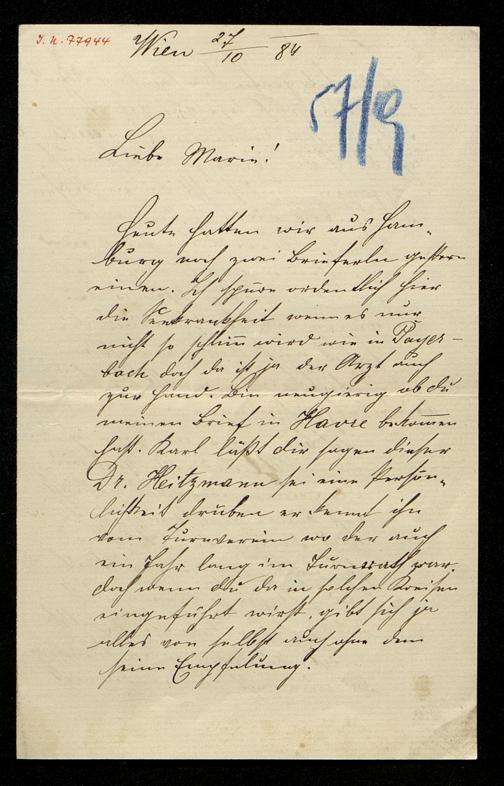 I. N. 77944
Wien 27/10 84
57/9
Liebe Marie!
Heute hatten wir aus Ham-
burg noch zwei Brieferln gestern
einen. Ich spüre ordentlich hier
die Seekrankheit wenn es nur
nicht so schlimm wird wie in Payer-
bach doch da ist ja der Arzt auch
zur Hand. Bin neugierig ob du
meinen Brief in Havre bekommen
hast. Karl läßt dir sagen dieser
Dr. Heitzmann sei eine Persön-
lichkeit drüben er kennt ihn
vom Turnverein wo der auch
ein Jahr lang im Turnrath war.
doch wenn du da in solchen Kreisen
eingeführt wirst, gibt sich ja
alles von selbst auch ohne dem
seine Empfelung.